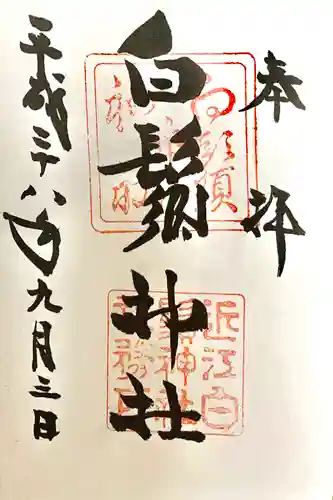 奉拝
白鬚神社
平成二十八年九月三日
近江白